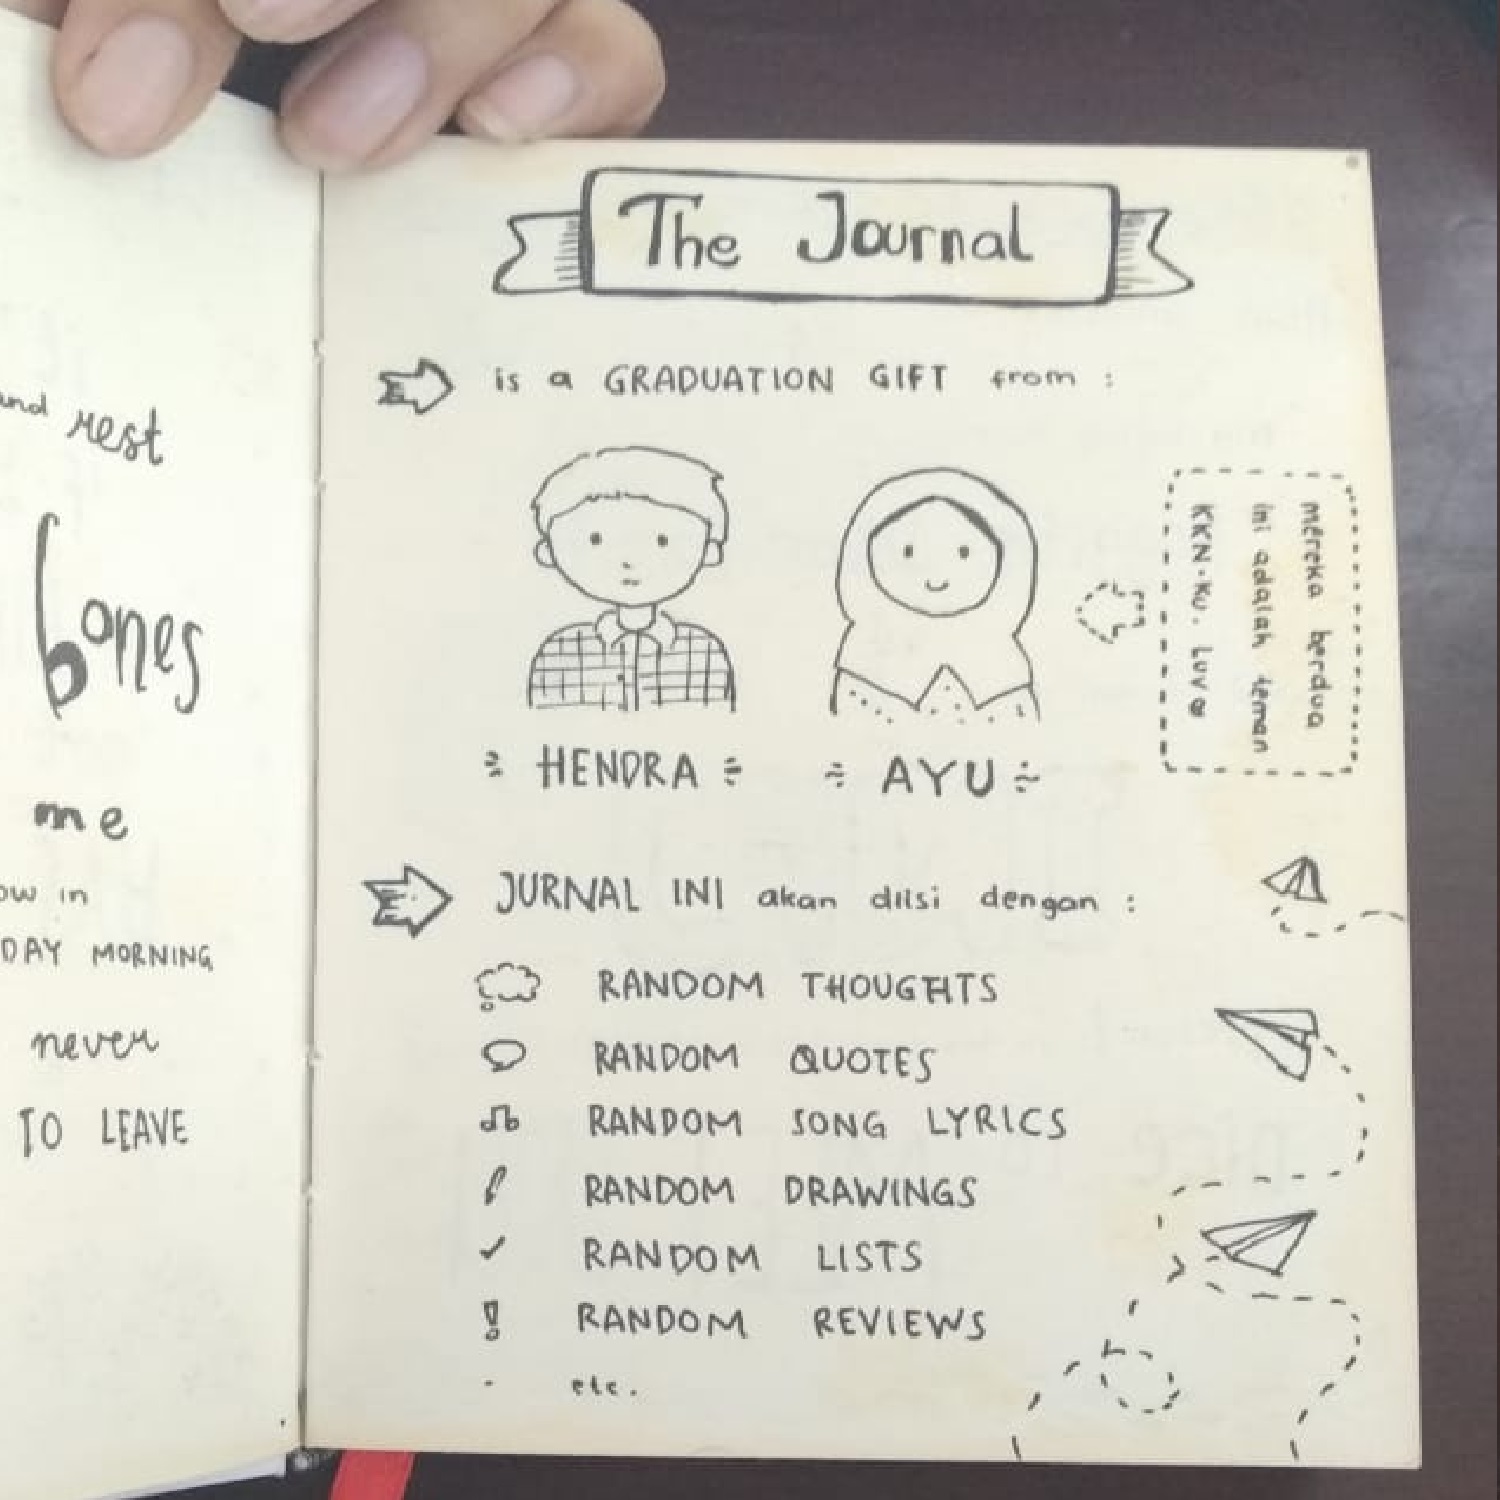 and rest
bones
me
ow in
DAY MORNING
never
TO LEAVE
The Journal
is a GRADUATION GIFT from :
HENDRA
AYU
mereka berdua
ini adalah teman
KKN-ku. Luv
JURNAL INI akan diisi dengan :
RANDOM THOUGHTS
RANDOM QUOTES
RANDOM SONG LYRICS
RANDOM DRAWINGS
RANDOM LISTS
RANDOM REVIEWS
etc.